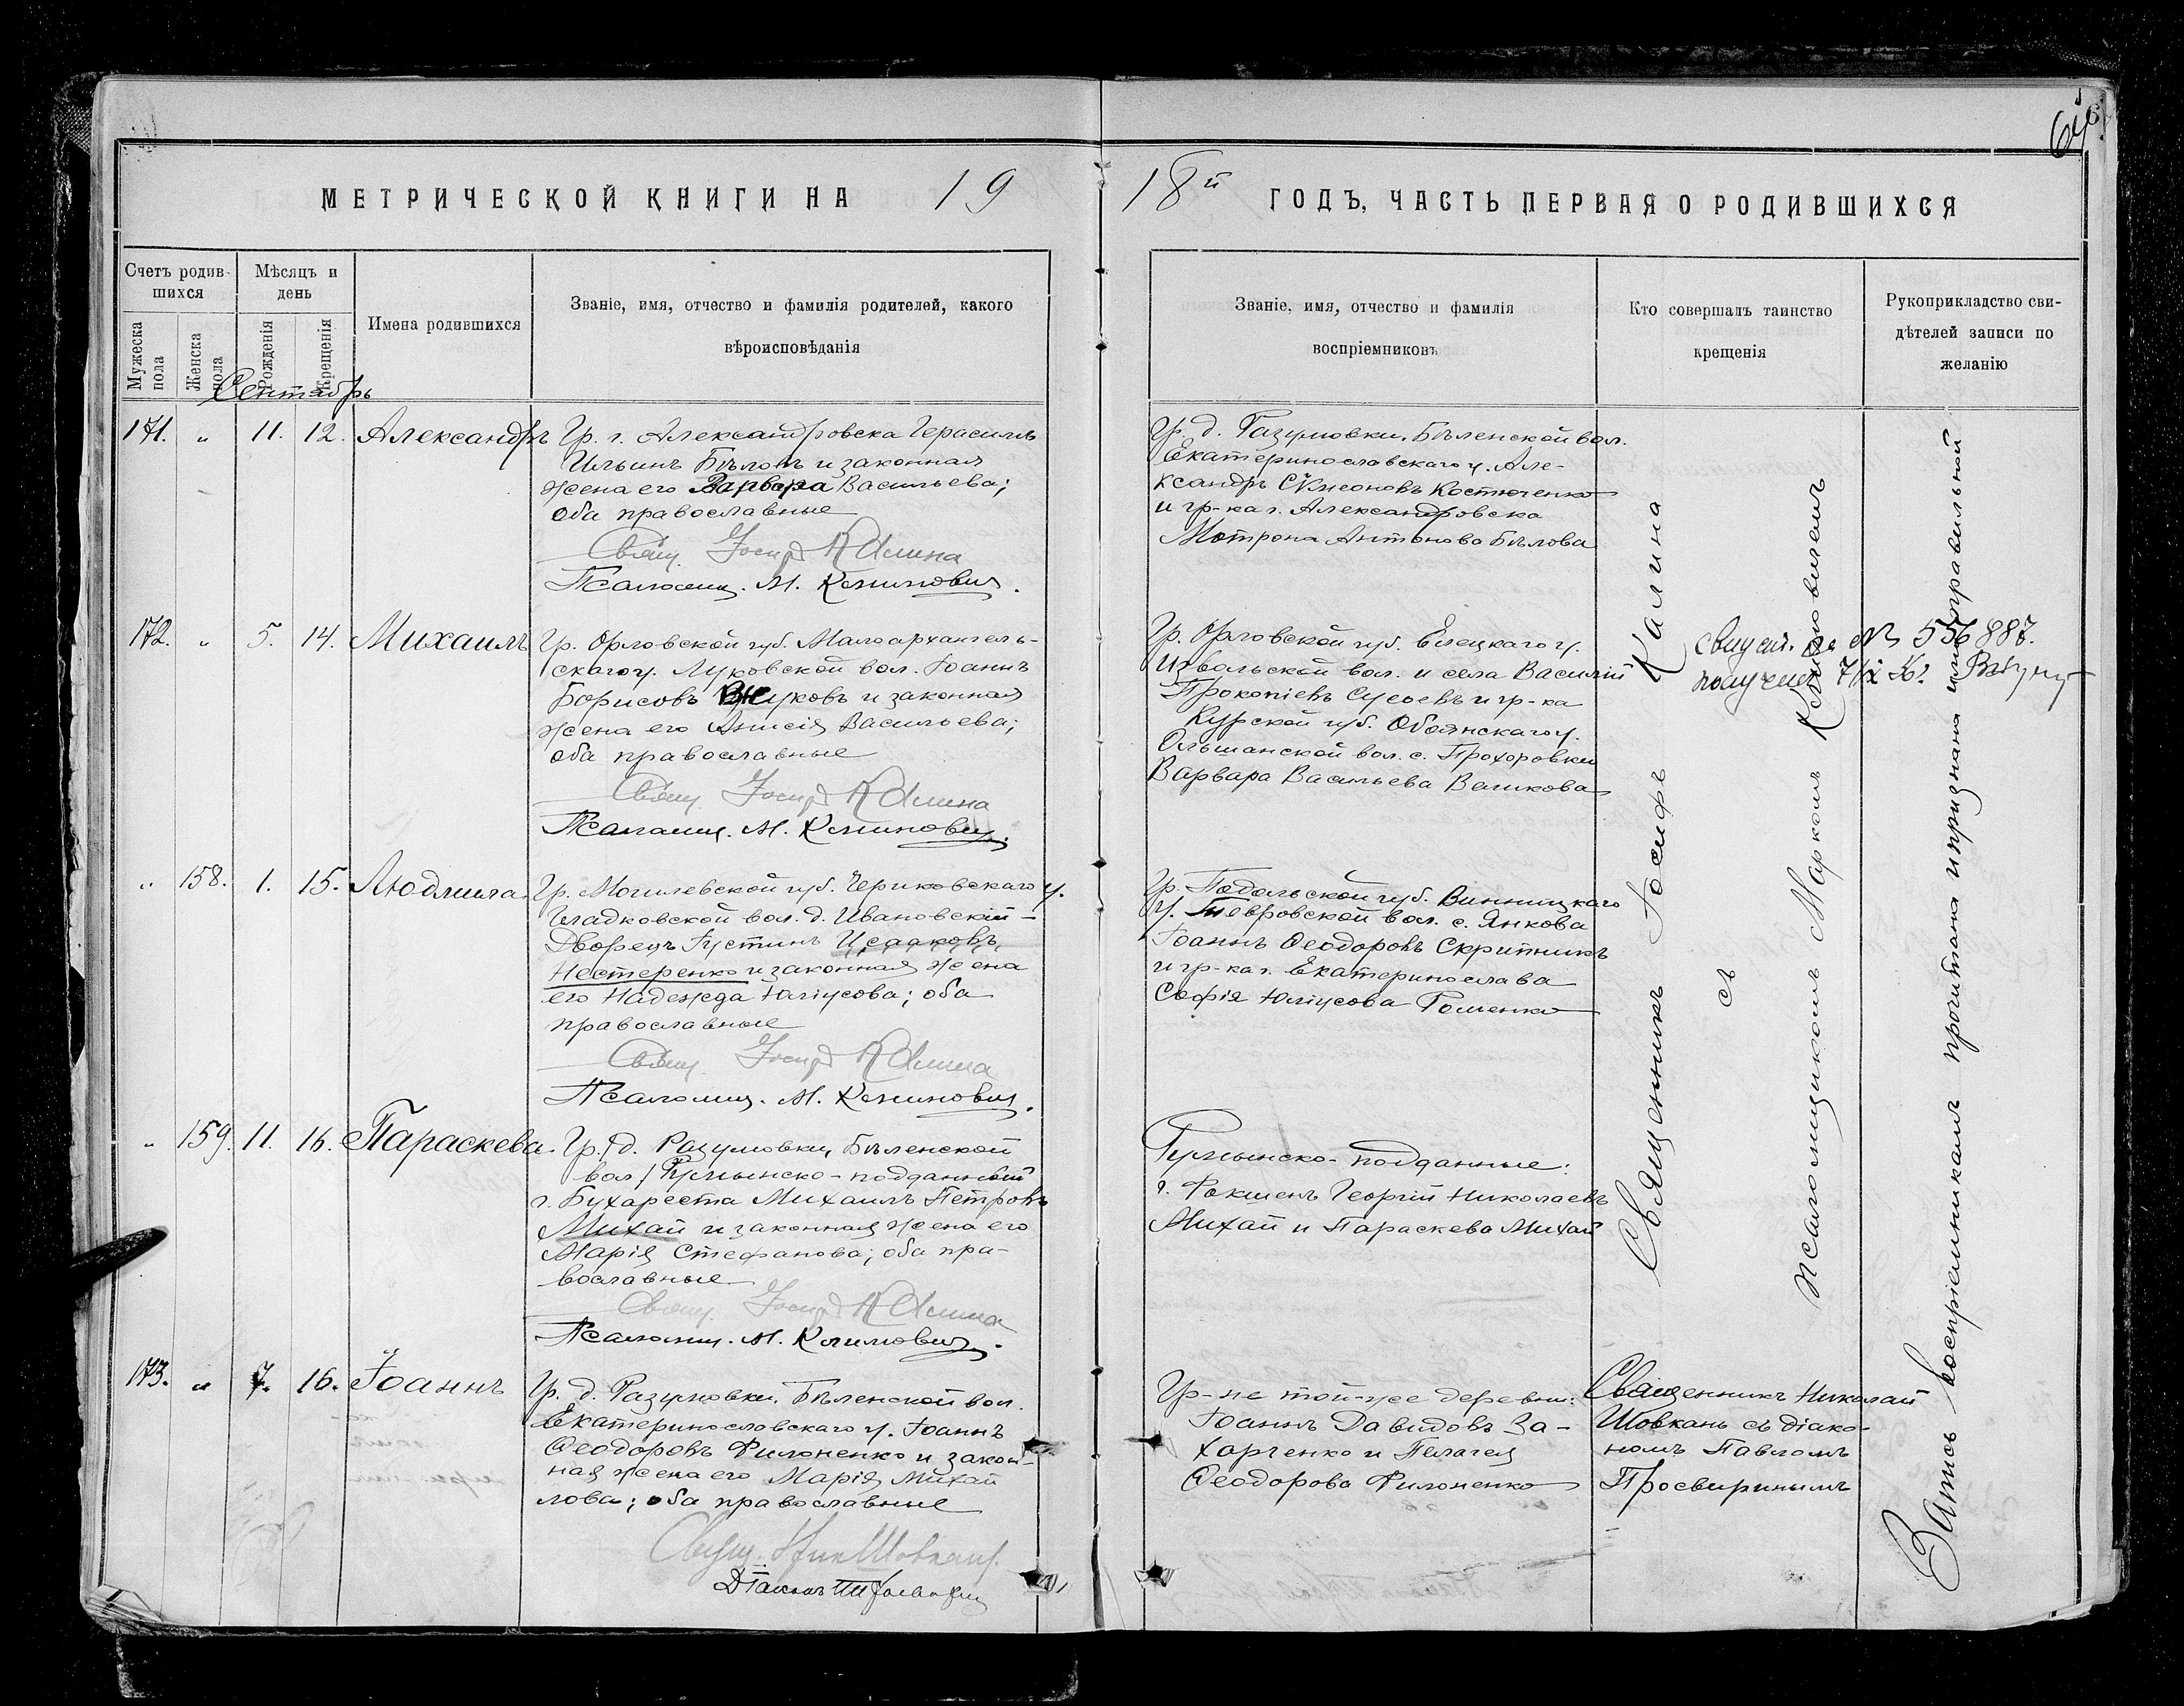 64
МЕТРИЧЕСКОЙ КНИГИ НА 19
18й ГОДЪ, ЧАСТЬ ПЕРВАЯ О РОДИВШИХСЯ
Счетъ родив-
шихся
Мужеска пола
Женска пола
Мѣсяцъ и
день
Рожденія
Крещенія
Имена родившихся
Званіе, имя, отчество и фамилія родителей, какого
вѣроисповѣданія
Званіе, имя, отчество и фамилія
воспріемниковъ
Кто совершалъ таинство
крещенія
Рукоприкладство сви-
дѣтелей записи по
желанію
Сентябрь
171. " 11. 12. Александръ
Гр. г. Александровска Герасимъ
Ильинъ Бѣловъ и законная
жена его Варвара Васильева;
оба православные
Свящ. Іосифъ Калина
Псаломщ. М. Климовичъ.
Гр. д. Разумовки, Бѣленской вол.
Екатеринославскаго у. Але-
ксандръ Сѵмеоновъ Костюченко
и гр-ка г. Александровска
Мотрона Антонова Бѣлова
172. " 5. 14. Михаилъ
Гр. Орловской губ. Малоархангель-
скаго у. Луковской вол. Іоаннъ
Борисовъ Жуковъ и законная
жена его Анисія Васильева;
оба православные
Свящ. Іосифъ Калина
Псаломщ. М. Климовичъ.
Гр. Орловской губ. Елецкаго у.
Извольской вол. и села Василій
Прокопіевъ Сусоевъ и гр-ка
Курской губ. Обоянскаго у.
Ольшанской вол. с. Прохоровки
Варвара Васильева Вашкова
свидет. за № 556887.
получен 7/IX
" 158. 1. 15. Людмила
Гр. Могилевской губ. Чериковскаго у.
Гладковской вол. д. Ивановскій-
Дворецъ Іустинъ Исааковъ
Нестеренко и законная жена
его Надежда Юліусова; оба
православные
Свящ. Іосифъ Калина
Псаломщ. М. Климовичъ.
Гр. Подольской губ. Винницкаго
у. Тывровской вол. с. Янкова
Іоаннъ Ѳеодоровъ Скрипникъ
и гр-ка г. Екатеринослава
Софія Юліусова Роменко
" 159. 11. 16. Параскева.
Гр. /д. Разумовки, Бѣленской
вол/ Румынско-подданный
г. Бухареста Михаилъ Петровъ
Михай и законная жена его
Марія Стефанова; оба пра-
вославные
Свящ. Іосифъ Калина
Псаломщ. М. Климовичъ.
Румынско-подданные:
г. Фокшенъ Георгій Николаевъ
Михай и Параскева Михай
173. " 7. 16. Іоаннъ
Гр. д. Разумовки, Бѣленской вол.
Екатеринославскаго у. Іоаннъ
Ѳеодоровъ Филоненко и закон-
ная жена его Марія Михай
лова; оба православные
Свящ. Ник Шовкань.
Діаконъ
Гр-не той-же деревни:
Іоаннъ Давидовъ За-
харченко и Пелагея
Ѳеодорова Филоненко
Священникъ Николай
Шовкань съ діако-
номъ Павломъ
Просвиринымъ
Священникъ Іосифъ Калина
съ
псаломщикомъ Маркомъ Климовичемъ
Запись воспріемникамъ прочитана и признана ими правильной